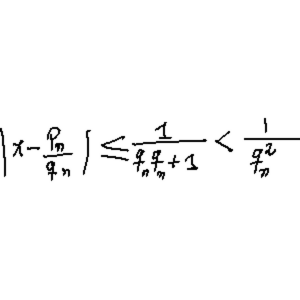 |x - \frac{p_n}{q_n}| \leq \frac{1}{q_n q_n + 1} < \frac{1}{q_n^2}